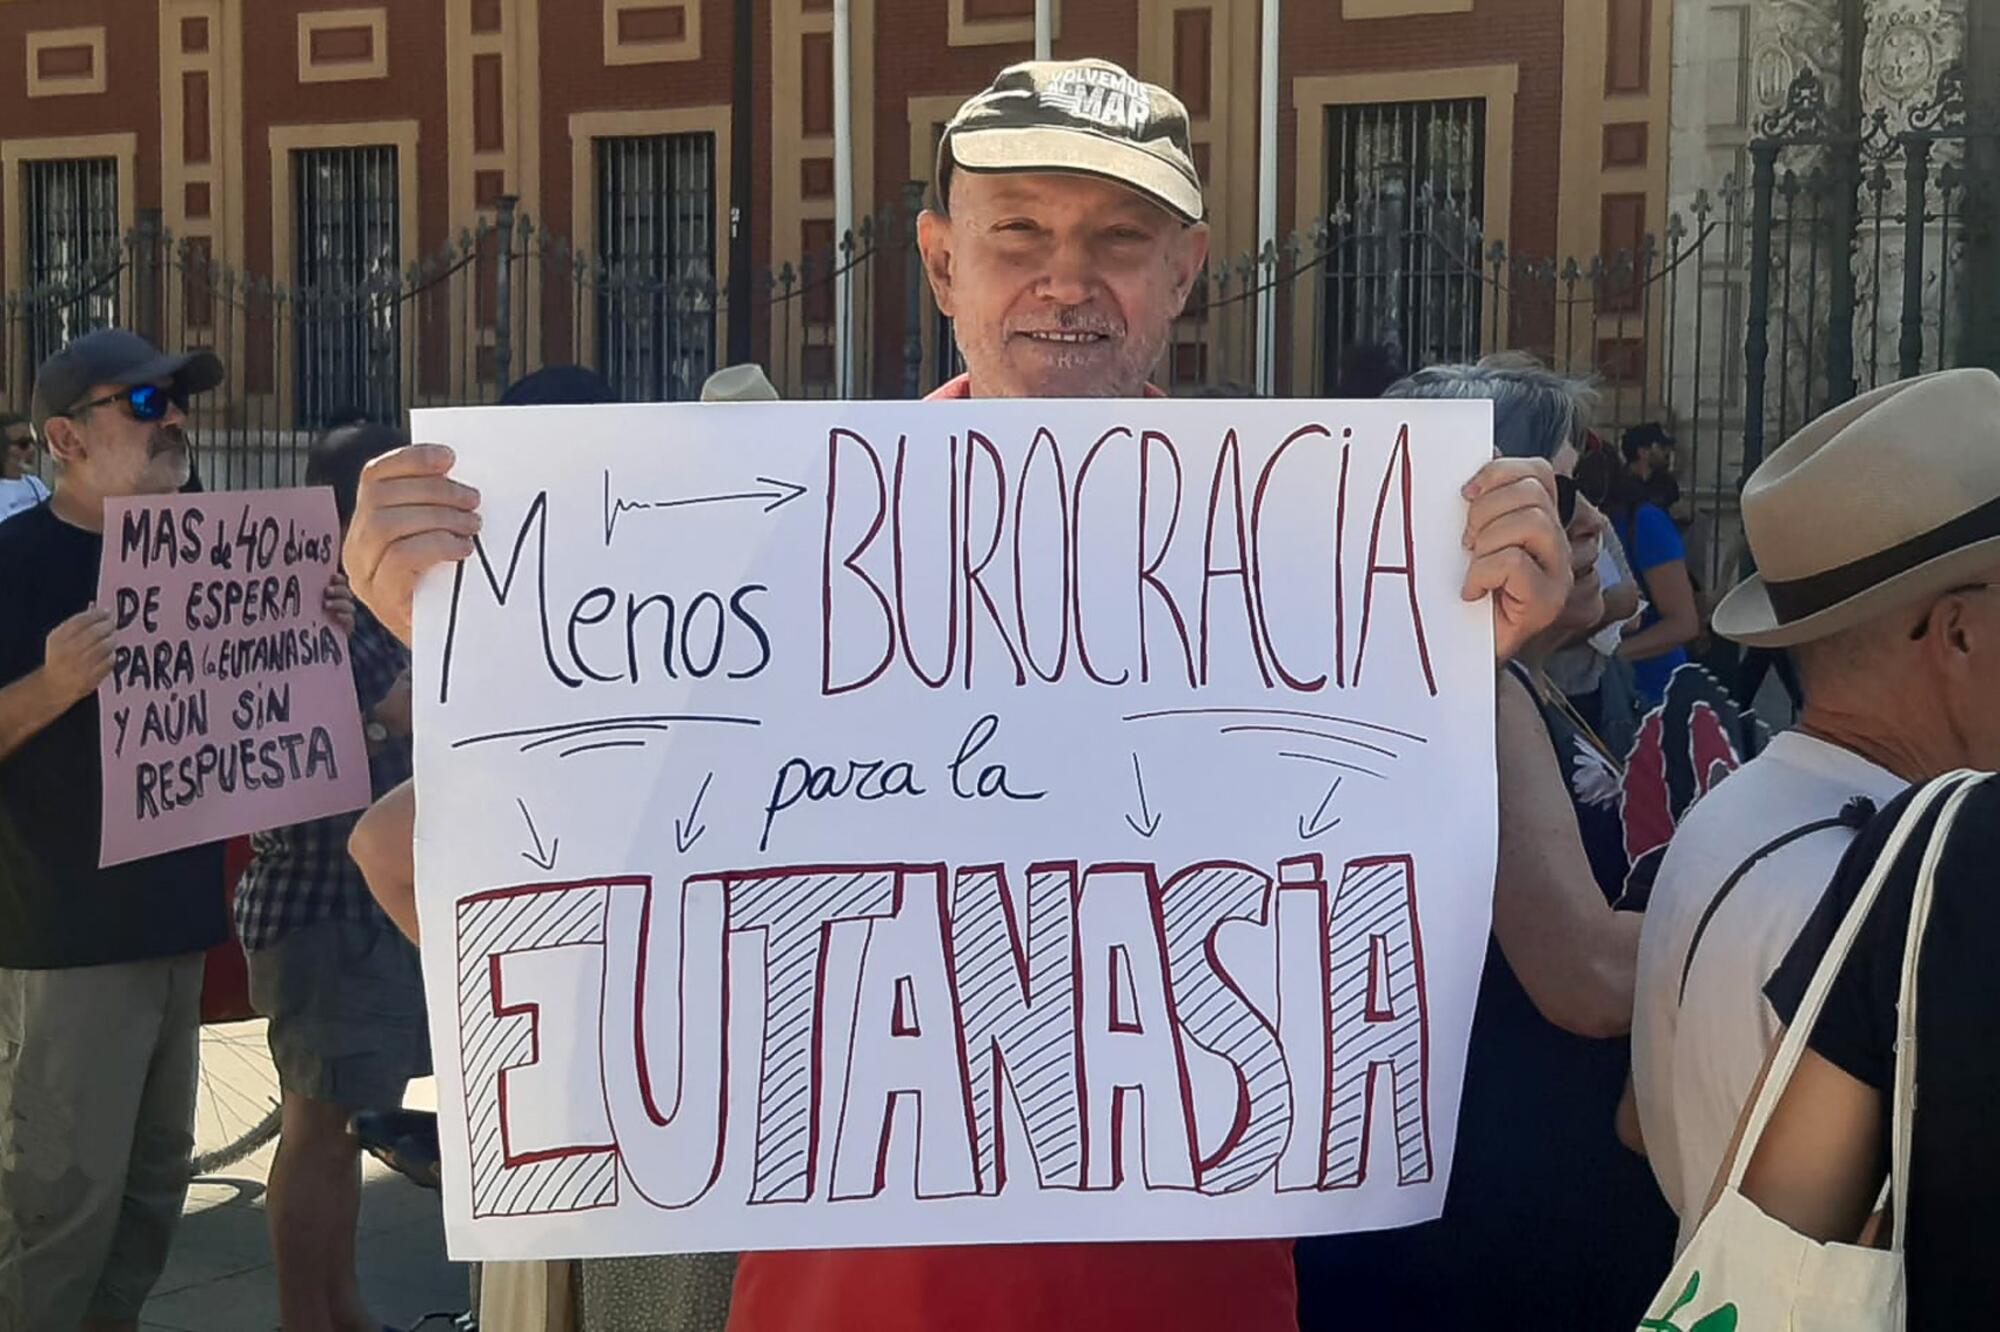 VOLVEMOS
AL MAP
Menos BUROCRACiA
para la
EUTANASiA
MAS de 40 dias
DE ESPERA
PARA la EUTANASiA
Y AÚN SiN
RESPUESTA